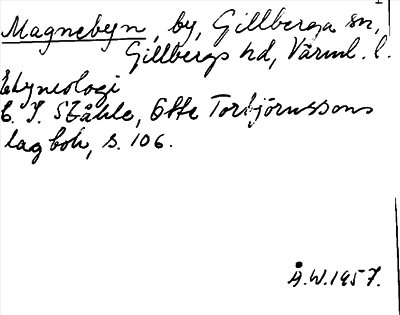 Magnebyn, by, Gillberga sn,
Gillbergs hd, Värml. l.
Etymologi
C. I. Ståhle, Otte Torbjörnssons
lagbok, s. 106.
Å.W.1957.